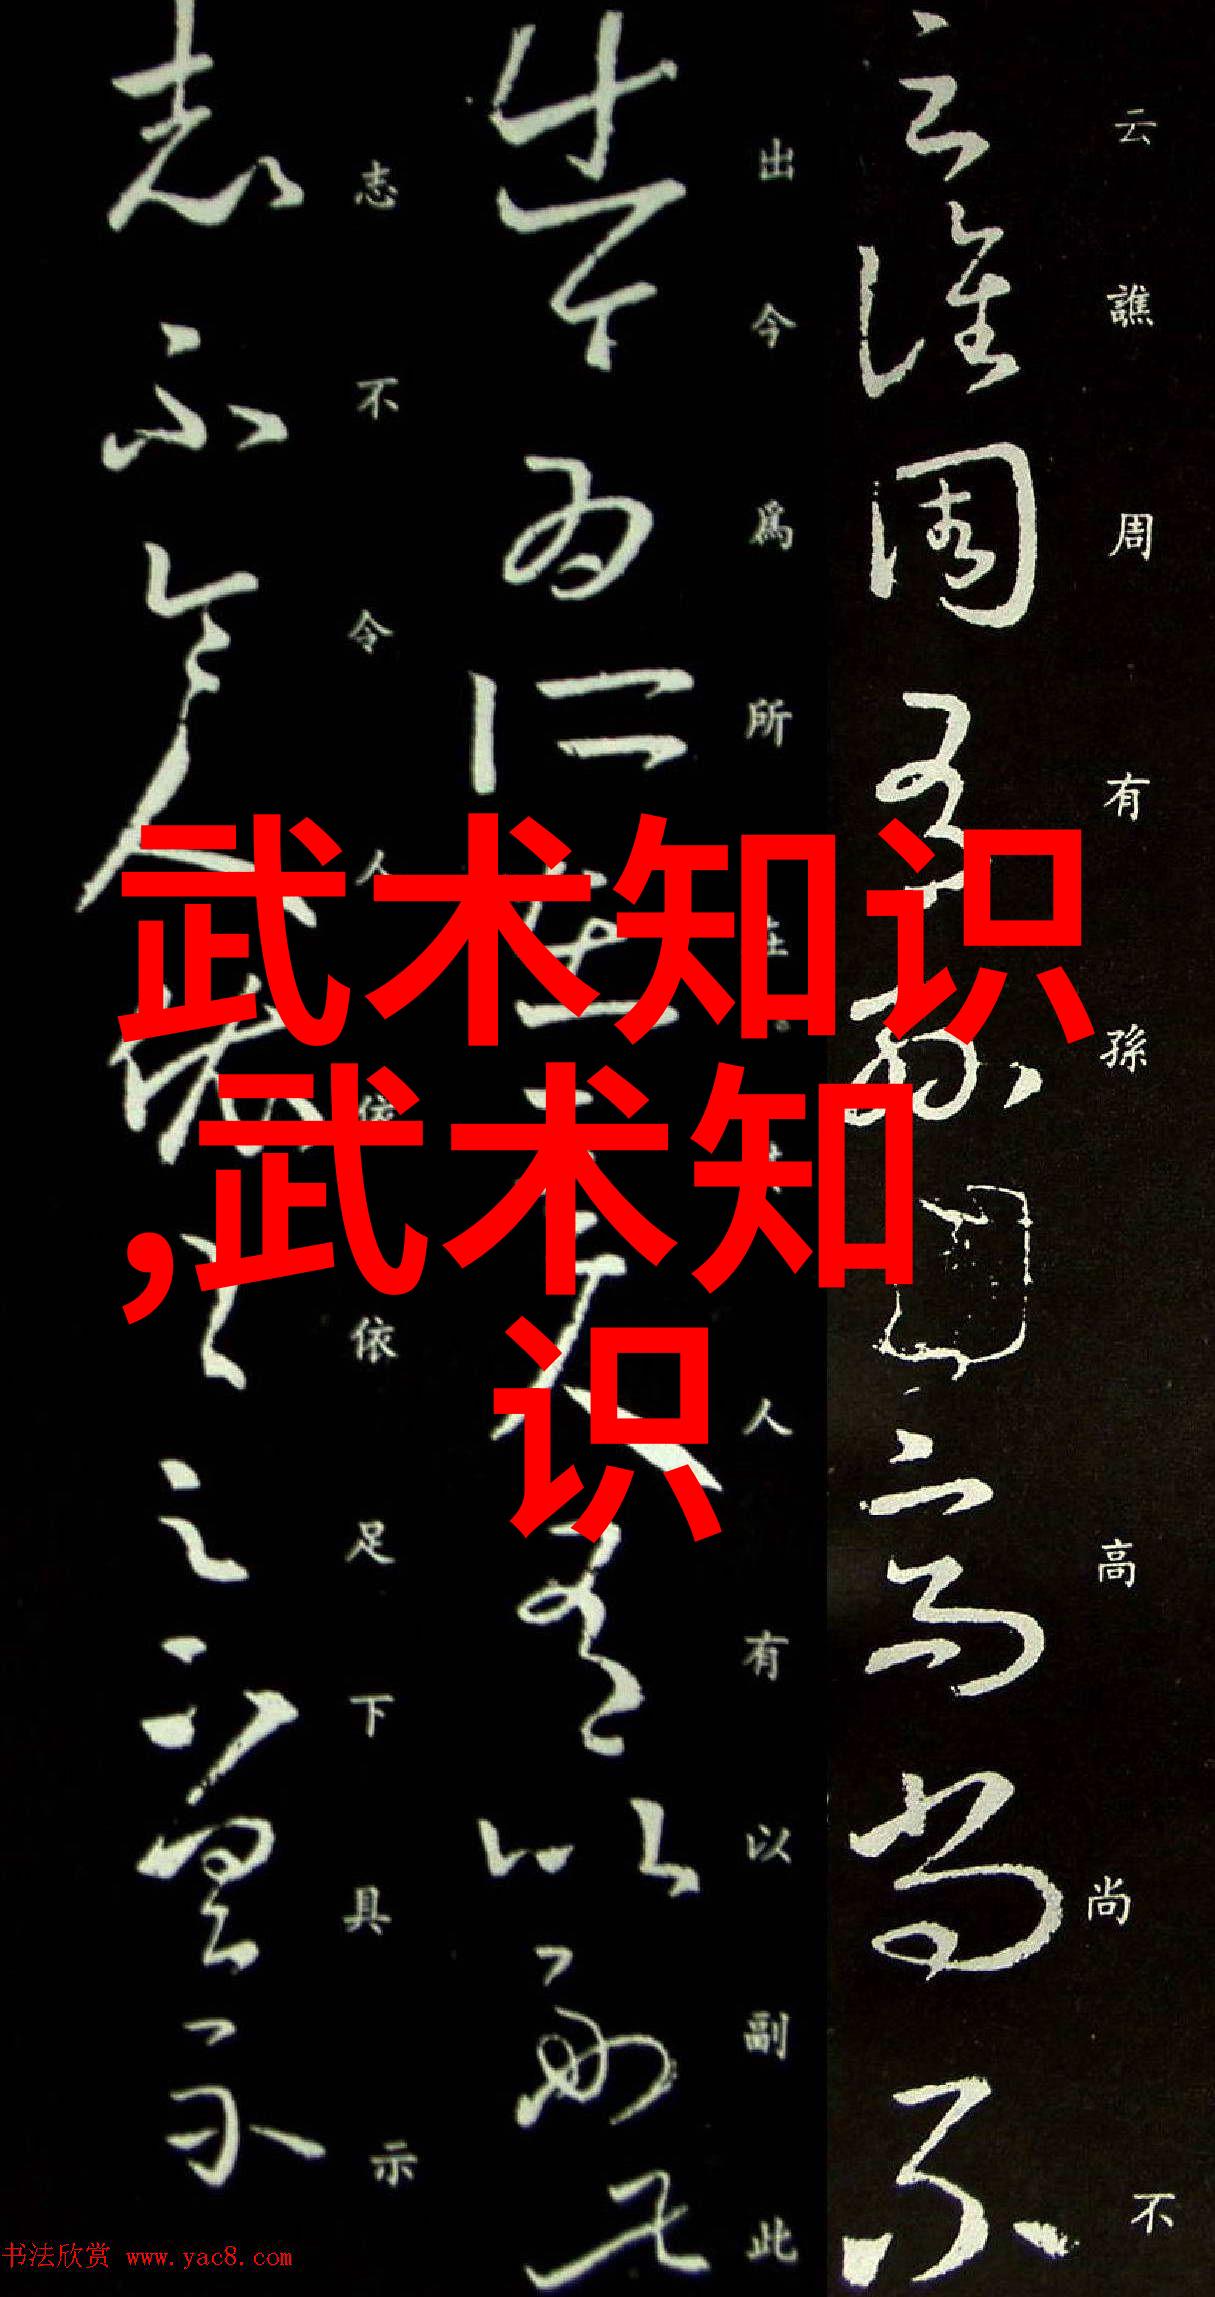 云譙周有孫高尚不
出今為所在其人有以副此
志不令人依依足下具示
武术知识
,武术知
识
书法欣赏 www.yac8.com